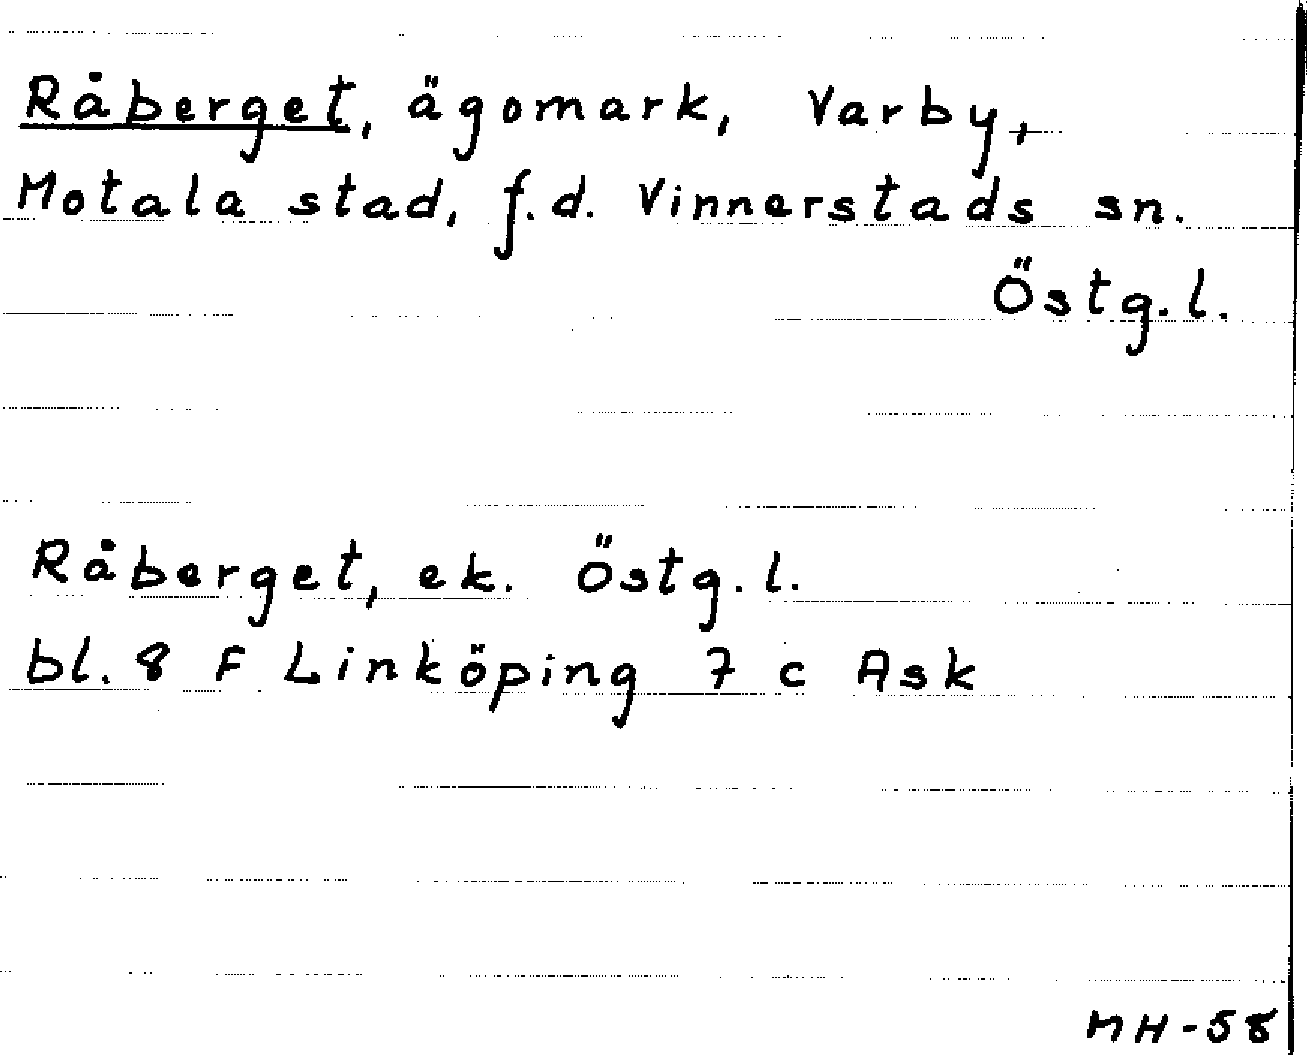 Råberget, ägomark, Varby,
Motala stad, f.d. Vinnerstads sn.
Östg.l.
Råberget, ek. Östg.l.
bl. 8 F Linköping 7 c Ask
MH-58